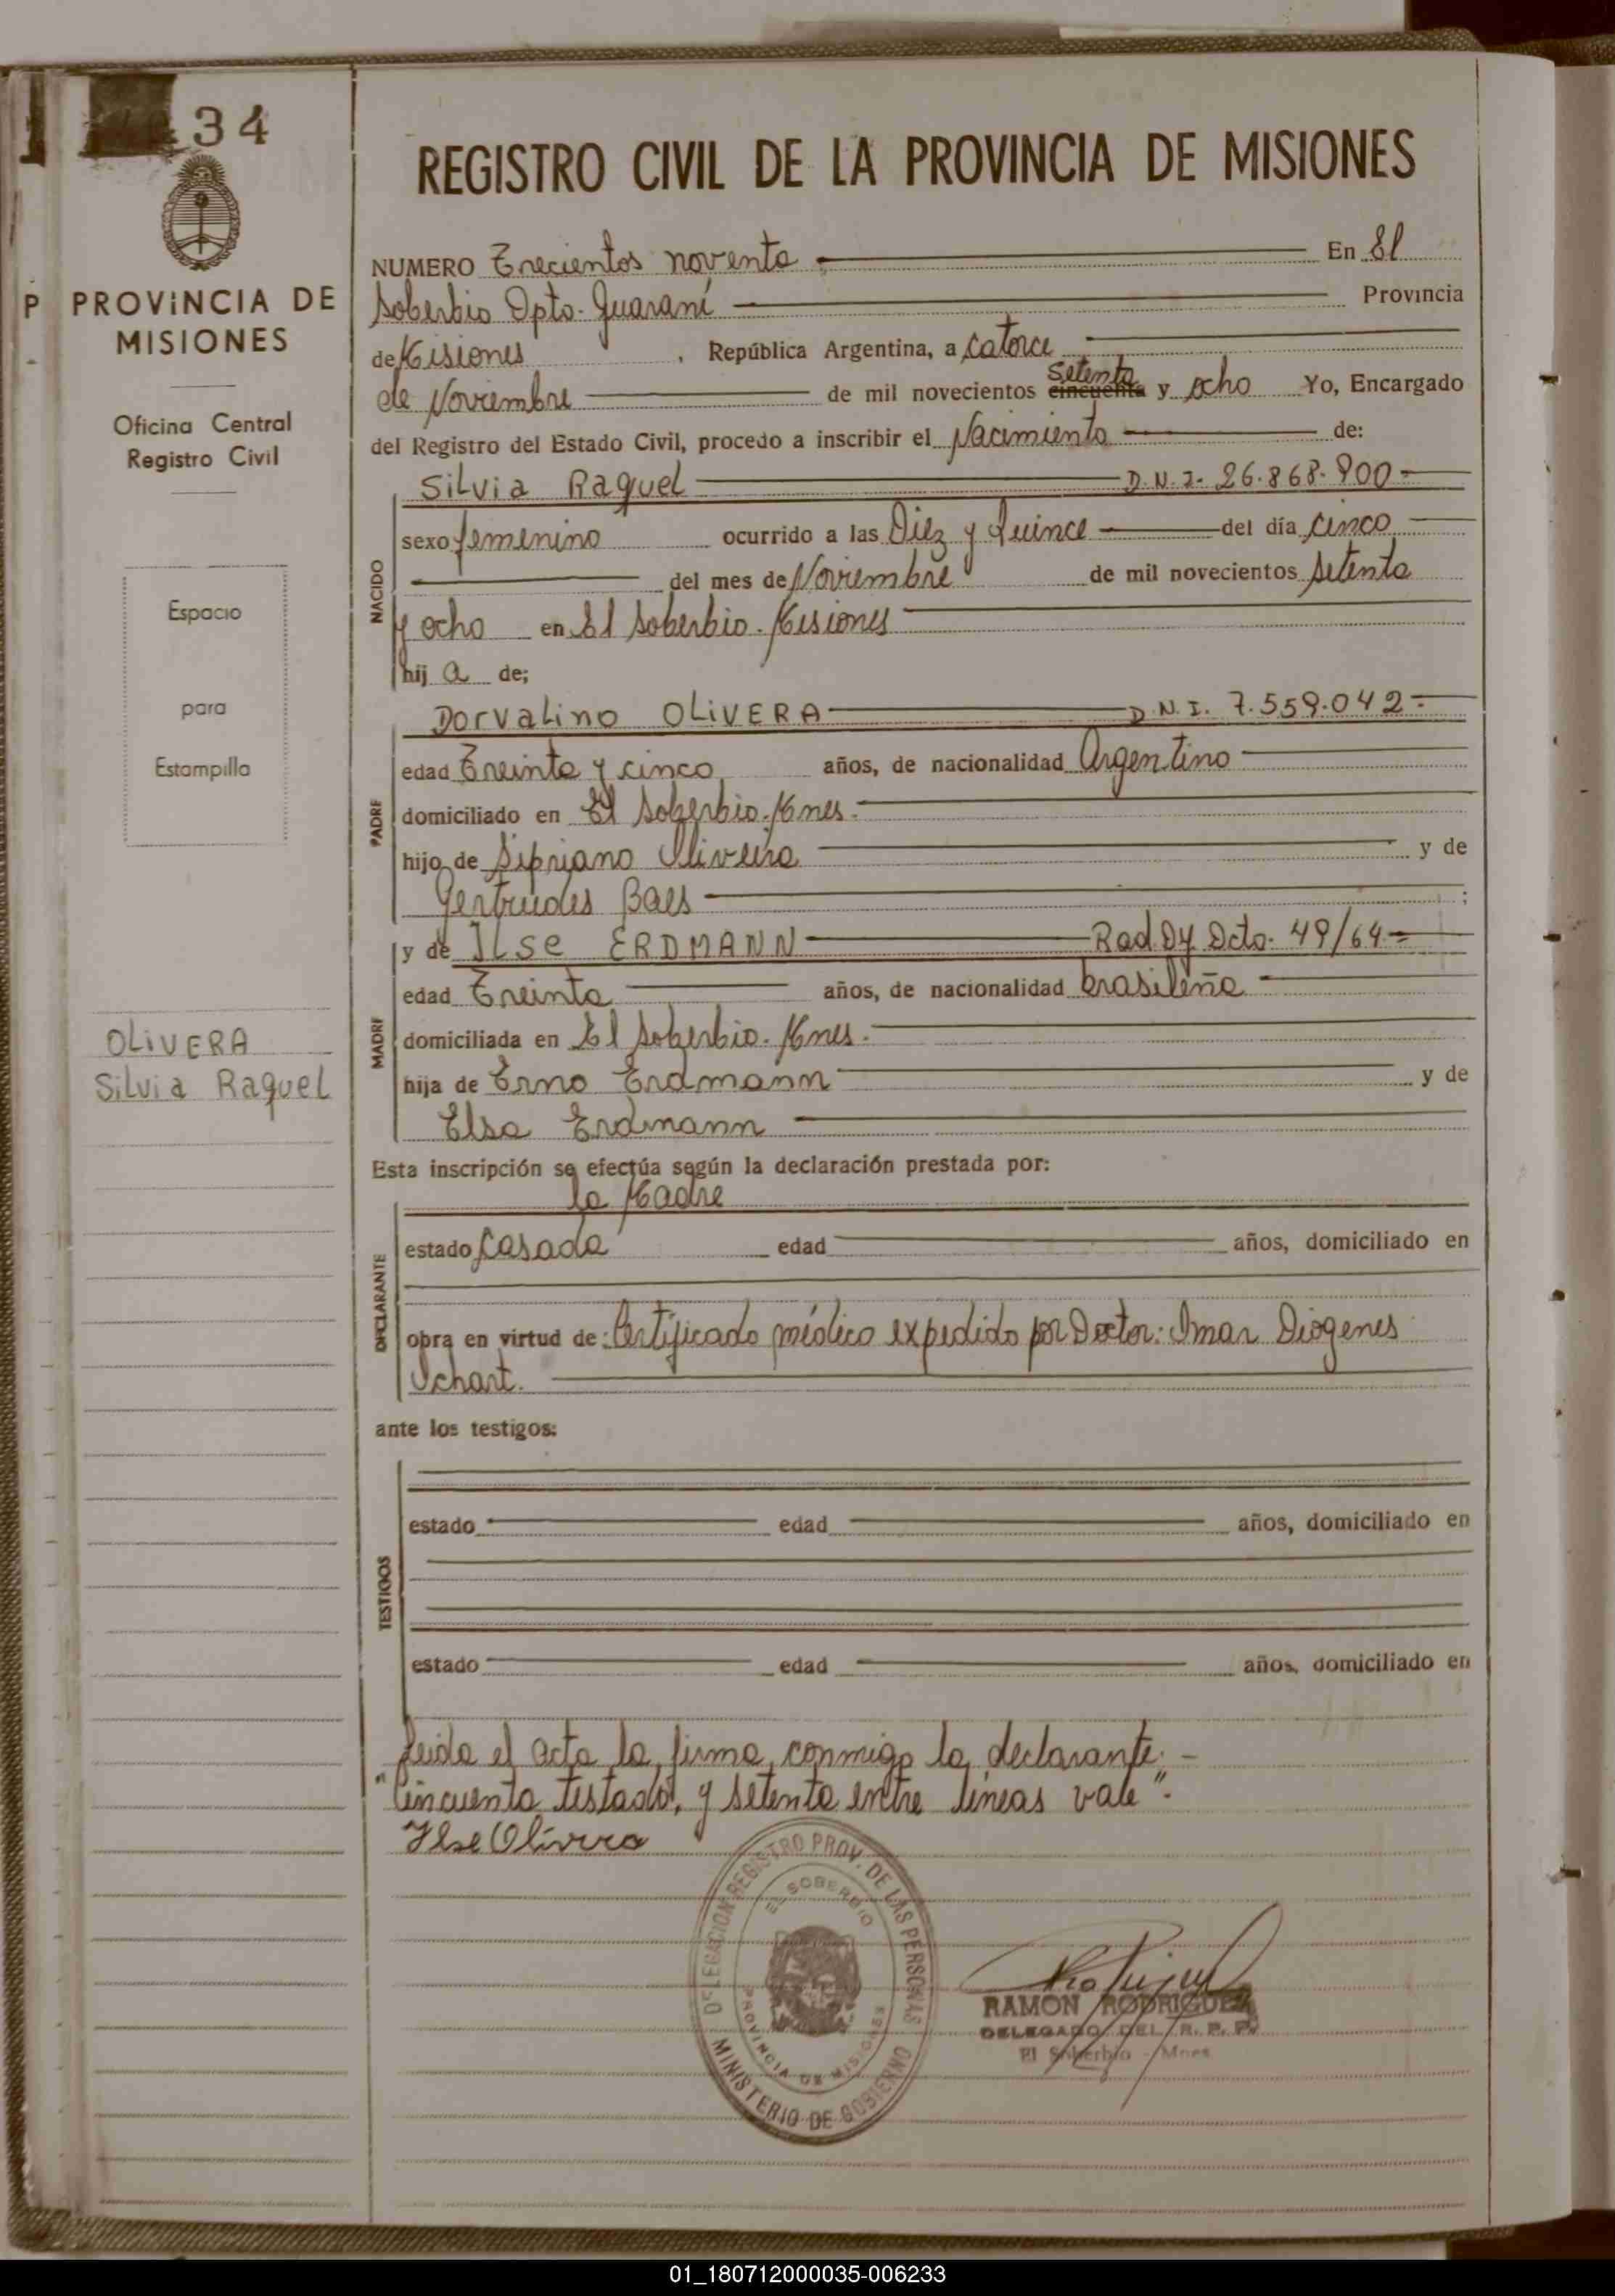 34
REGISTRO CIVIL DE LA PROVINCIA DE MISIONES
P PROVINCIA DE
MISIONES
Oficina Central
Registro Civil
Espacio
para
Estampilla
OLIVERA
Silvia Raquel
NUMERO Trecientos noventa En El
Soberbio Dpto. Guaraní Provincia
de Misiones, República Argentina, a catorce
de Noviembre de mil novecientos cincuenta Setenta y ocho Yo, Encargado
del Registro del Estado Civil, procedo a inscribir el Nacimiento de:
NACIDO
Silvia Raquel D.N.I. 26.868.900
sexo femenino ocurrido a las Diez y Quince del día cinco
del mes de Noviembre de mil novecientos setenta
y ocho en El Soberbio. Misiones
hij a de;
PADRE
Dorvalino OLIVERA D.N.I. 7.559.042
edad Treinta y cinco años, de nacionalidad Argentino
domiciliado en El Soberbio. Mnes.
hijo de Sipriano Oliveira y de
Gertrudes Baes ;
MADRE
y de ILse ERDMANN Rad. Dy Dcto. 49/64
edad Treinta años, de nacionalidad brasileña
domiciliada en El Soberbio. Mnes.
hija de Erno Erdmann y de
Elsa Erdmann
Esta inscripción se efectúa según la declaración prestada por:
DECLARANTE
la Madre
estado Casada edad años, domiciliado en
obra en virtud de: Certificado médico expedido por Doctor: Imar Diógenes
Schart.
ante los testigos:
TESTIGOS
estado edad años, domiciliado en
estado edad años, domiciliado en
Leida el acta la firma conmigo la declarante. -
"Cincuenta testado, y setenta entre líneas vale".
Ilse Olivera
DELEGACION REGISTRO PROV. DE LAS PERSONAS
EL SOBERBIO
PROVINCIA DE MISIONES
MINISTERIO DE GOBIERNO
RAMON RODRIGUEZ
DELEGADO DEL R. P. P.
El Soberbio - Mnes
01_180712000035-006233